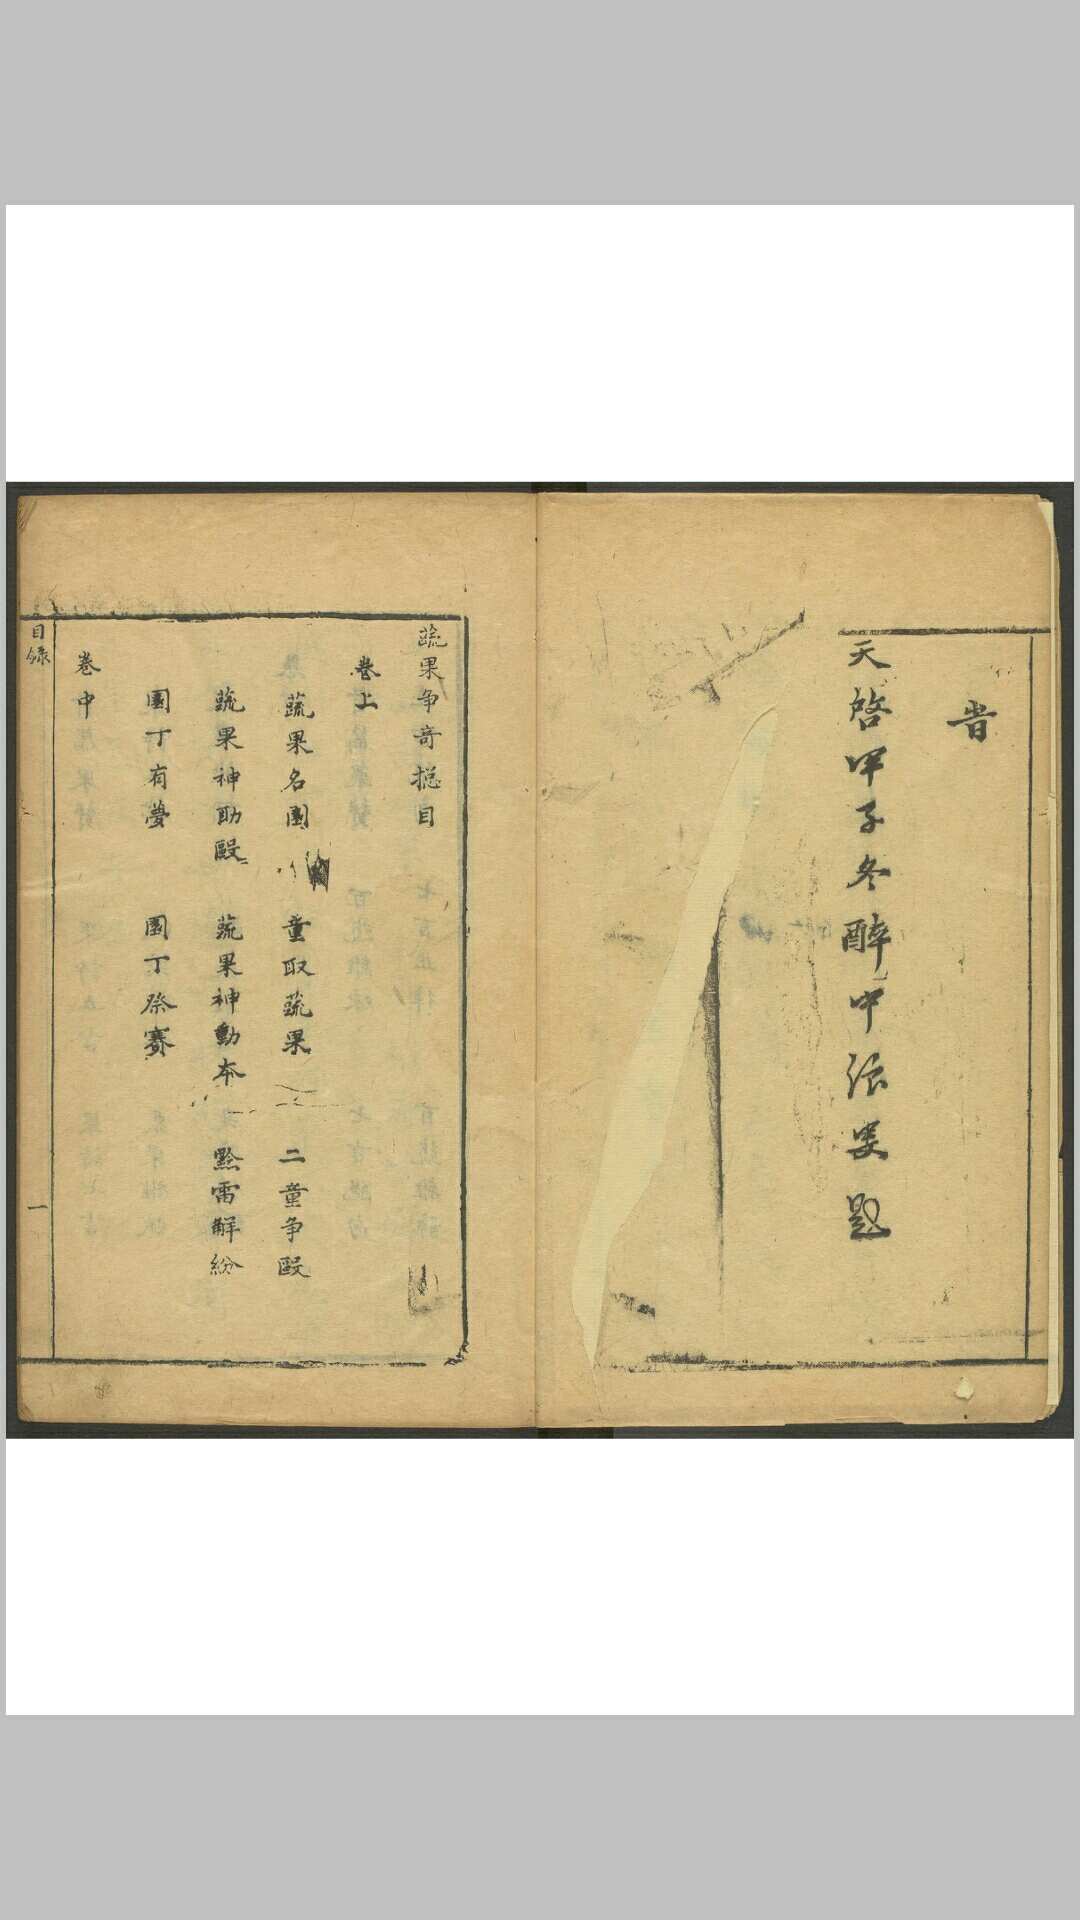 旹
天啓甲子冬醉中漫叟題
蔬果争竒揔目
卷上
蔬果名園 童取蔬果 二童争毆
蔬果神助毆 蔬果神動本 黙雷解紛
園丁有夢 園丁祭賽
卷中
目錄
一